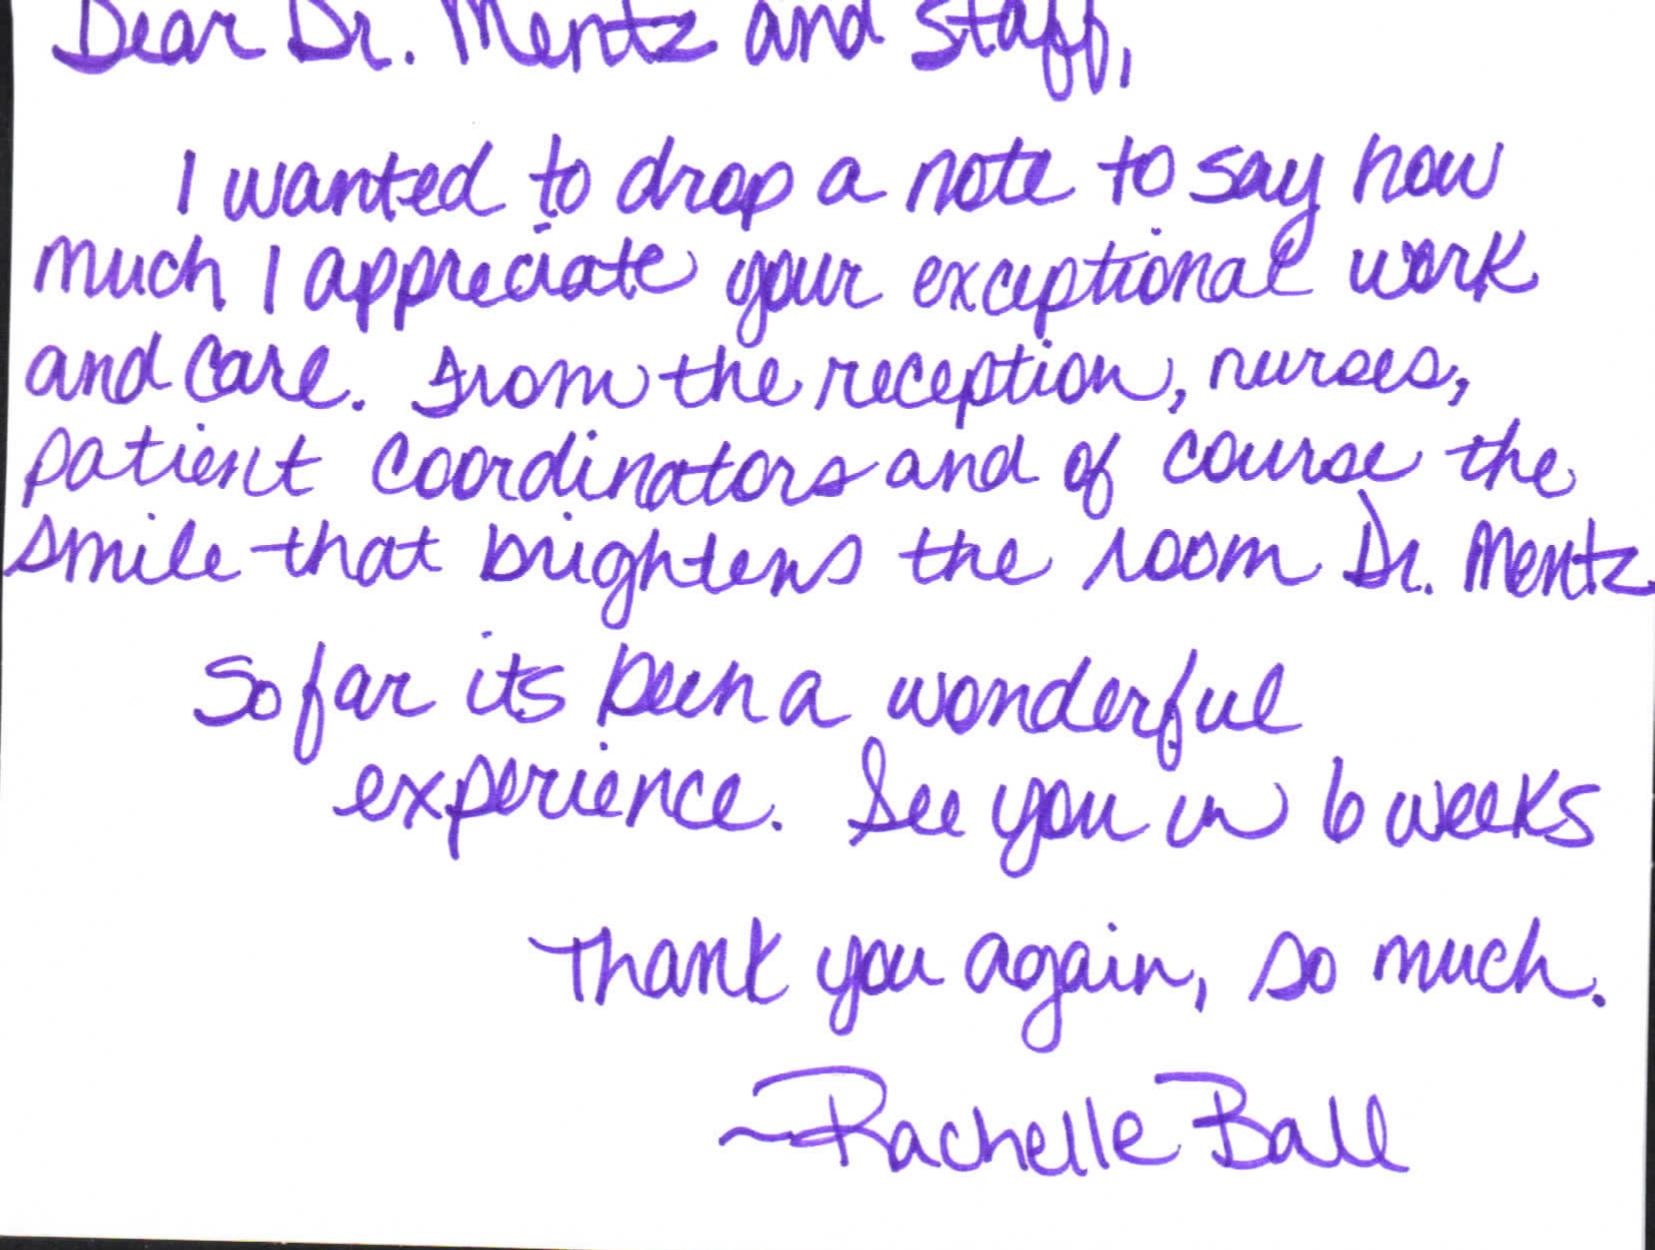 Dear Dr. Mentz and staff,
I wanted to drop a note to say how
much I appreciate your exceptional work
and care. From the reception, nurses,
patient coordinators and of course the
smile that brightens the room Dr. Mentz
So far its been a wonderful
experience. See you in 6 weeks
Thank you again, so much.
~Rachelle Ball